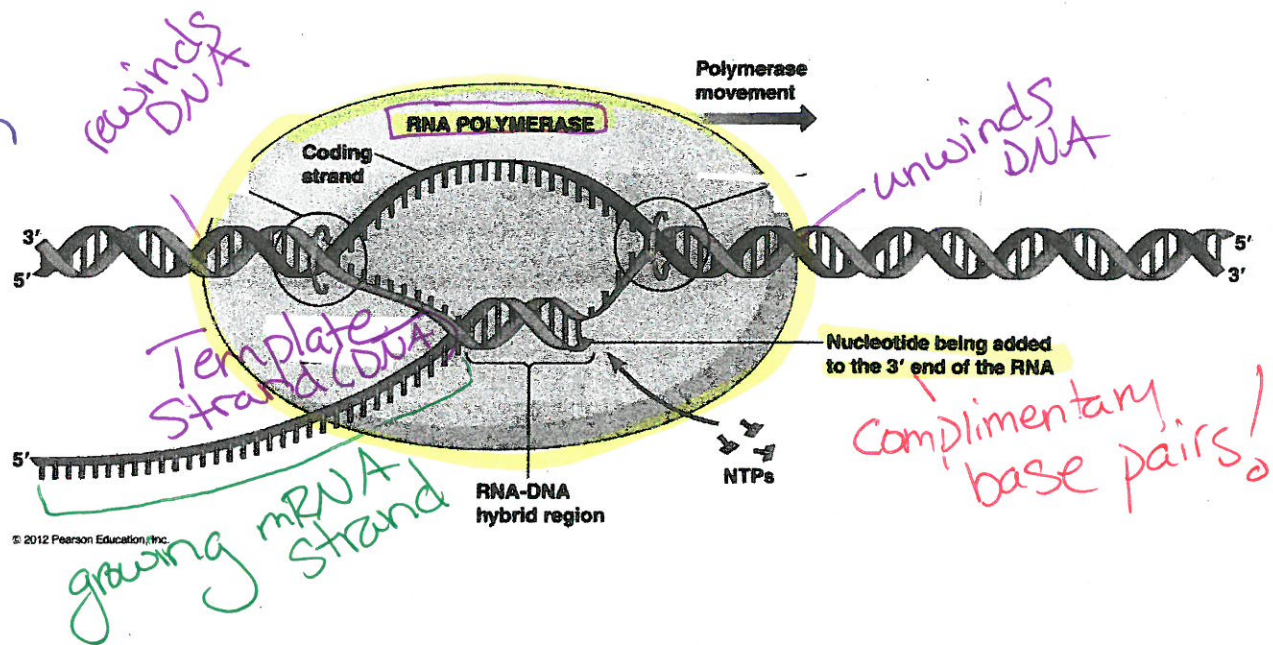 rewinds
DNA
Polymerase
movement
RNA POLYMERASE
unwinds
DNA
Coding
strand
3'
5'
5'
3'
Template
Strand (DNA)
Nucleotide being added
to the 3' end of the RNA
complimentary
base pairs!
5'
NTPs
RNA-DNA
hybrid region
growing mRNA
strand
© 2012 Pearson Education, Inc.